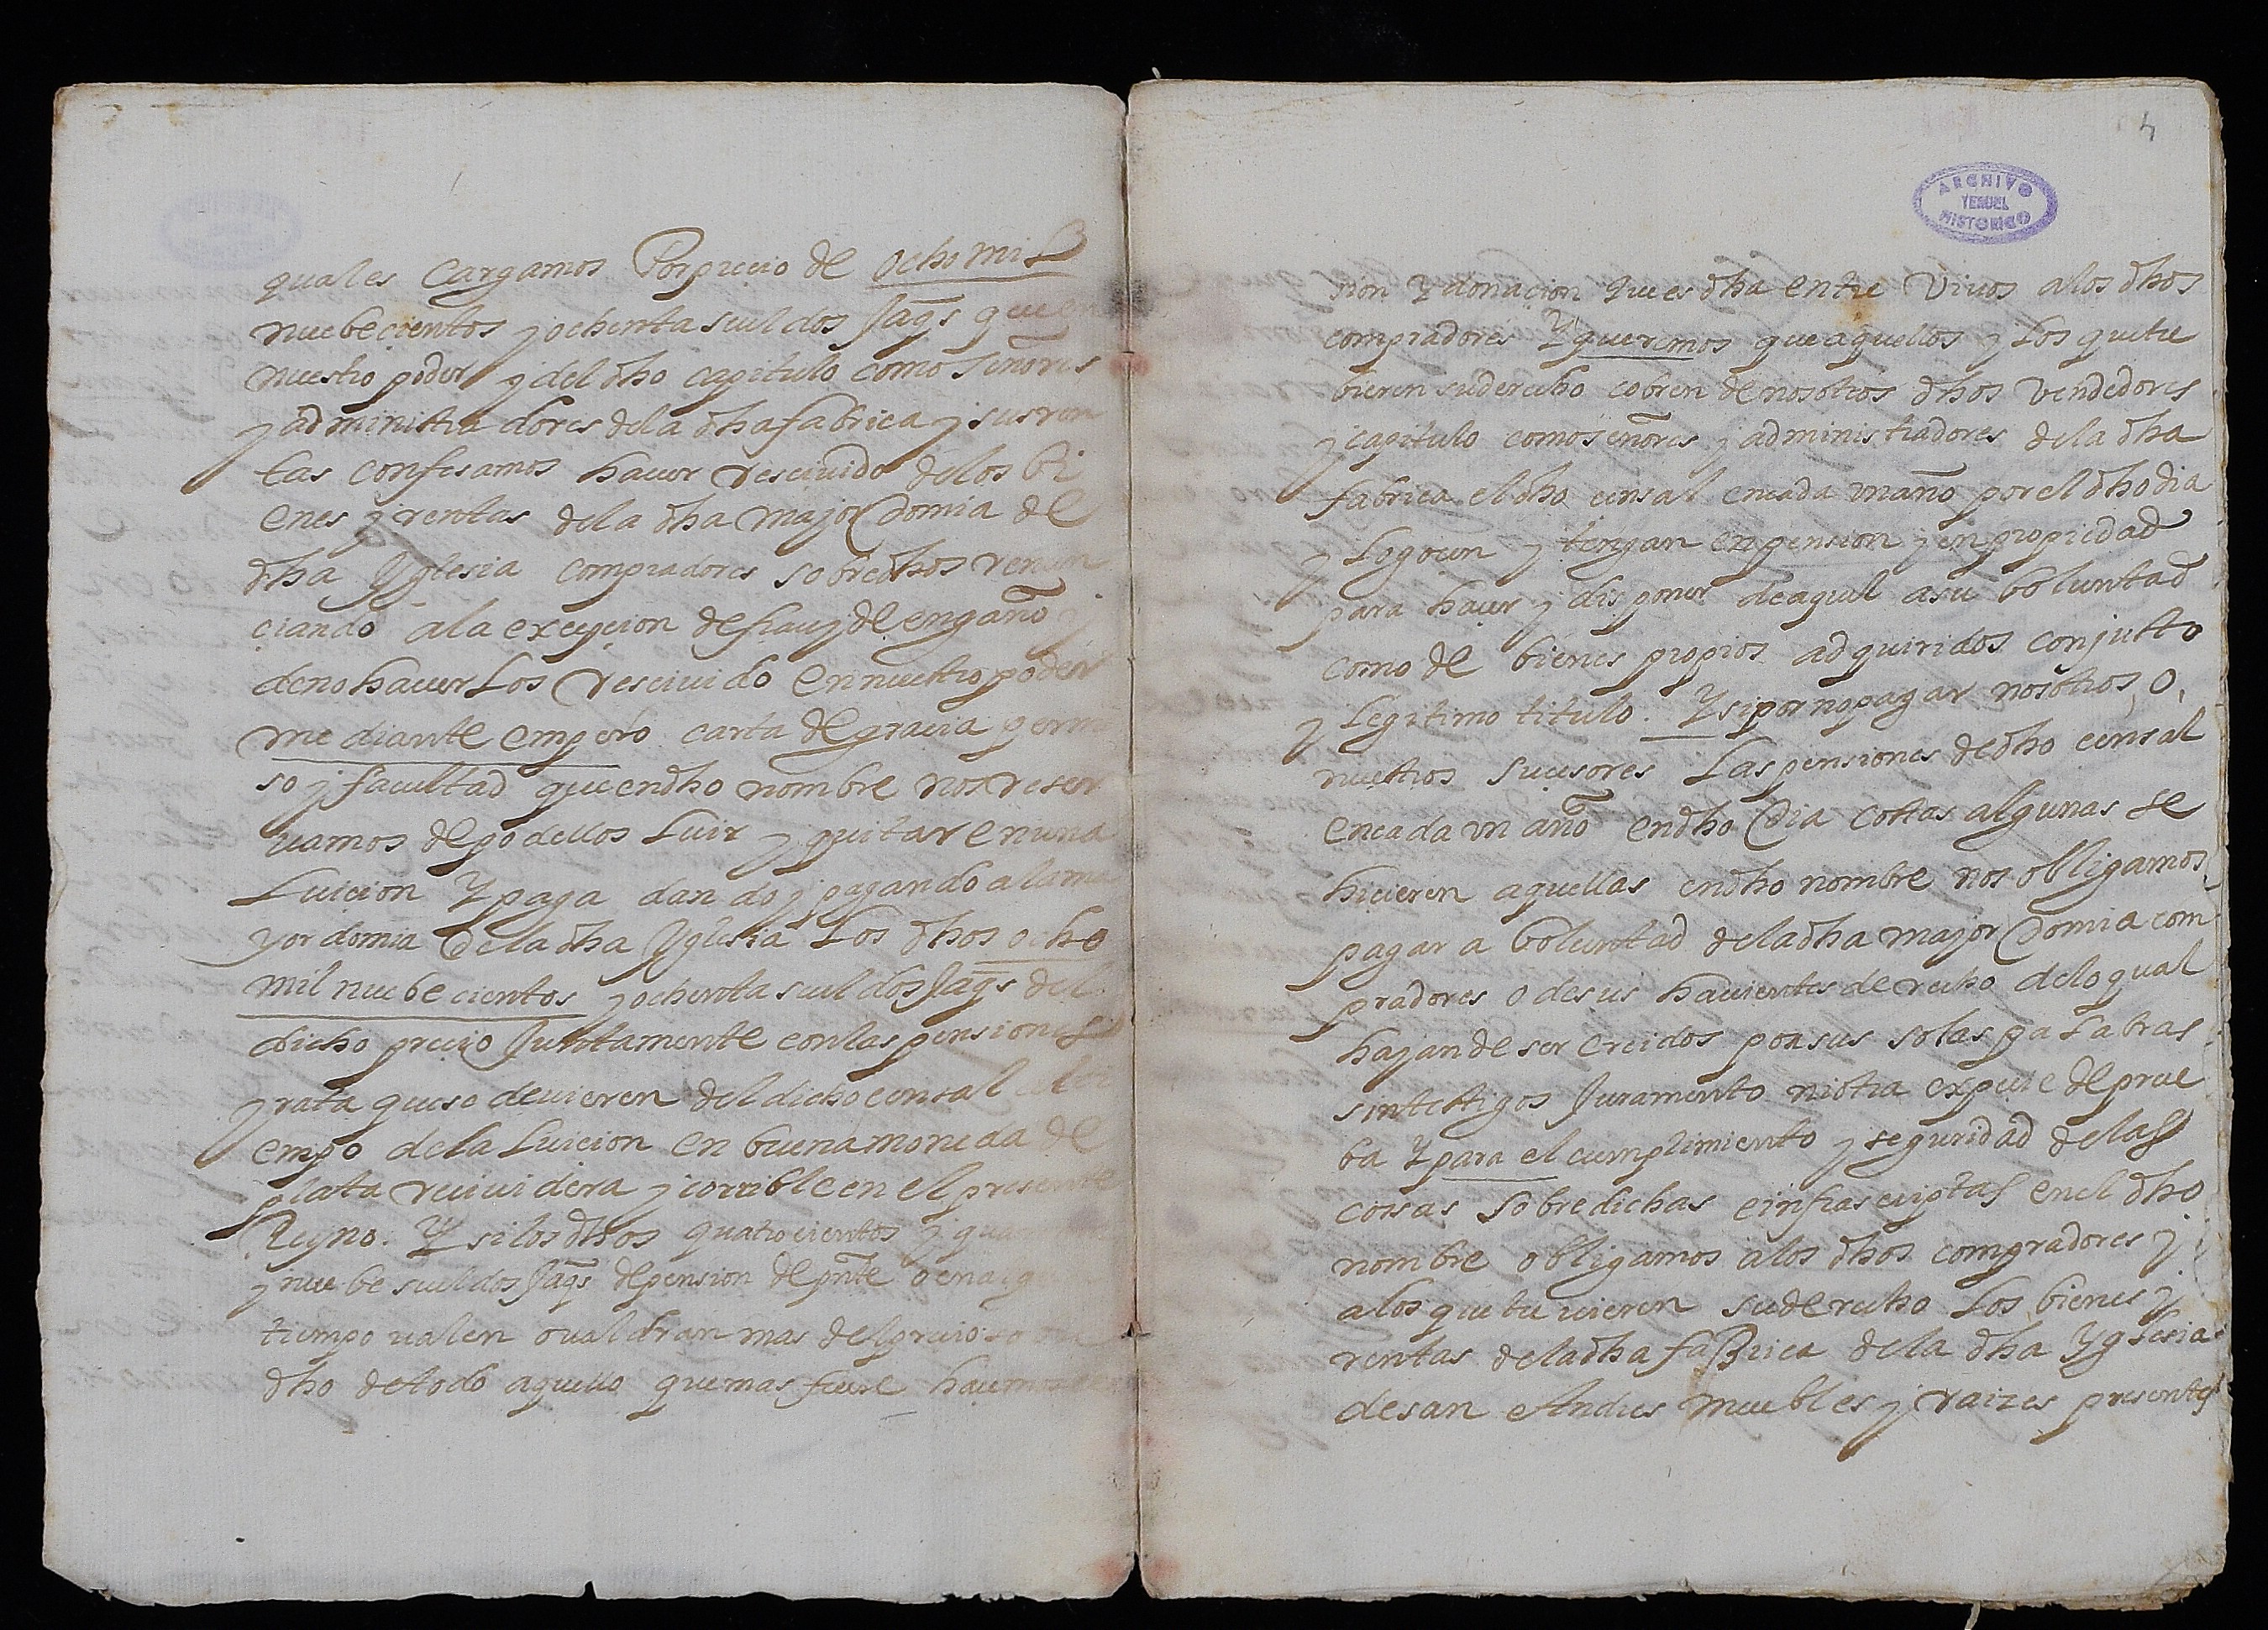 quales cargamos Por precio de ocho mil
nuebecientos y ochenta sueldos Jaqs que en
nuestro poder y del dho capitulo como señores
y administradores dela dha fabrica y sus ren
tas confesamos hauer resciuido delos bi
enes y rentas dela dha mayor domia de
dha Yglesia compradores sobredhos renun
ciando ala excepcion de frau y de engaño y
deno hauer Los resciuido en nuestro poder
mediante empero carta de gracia permi
so y facultad que en dho nombre nos reser
uamos de podellos Luir y quitar en una
Luicion Y paga dando y pagando a la ma
yor domia dela dha Yglesia Los dhos ocho
mil nuebe cientos y ochenta sueldos Jaqs del
dicho precio Juntamente con las pensiones
y rata que se deuieren del dicho censal al ti
empo dela Luicion en buena moneda de
plata reciuidera y corrible en el presente
Reyno. Y si los dhos quatrocientos y quarenta
y nuebe sueldos Jaqs de pension de pnte o en algun
tiempo valen o ualdran mas del precio so
dho de todo aquello que mas fuere hacemos
4
ARCHIVO
TERUEL
HISTORICO
sion Y donacion que es dha entre Viuos a los dhos
compradores Y queremos que aquellos y Los que tu
bieren su derecho cobren de nosotros dhos vendedores
y capitulo como señores y administradores dela dha
fabrica el dho censal en cada un año por el dho dia
y Lo gocen y tengan en pension y en propiedad
para hacer y disponer de aquel a su boluntad
como de bienes propios adquiridos con justto
y Legitimo titulo. Y si por no pagar nosotros, o,
nuestros sucesores Las pensiones de dho censal
en cada un año en dho Dia costas algunas se
hicieren aquellas en dho nombre nos obligamos
pagar a boluntad dela dha mayor domia com
pradores o de sus hauientes derecho delo qual
hayan de ser creidos por sus solas palabras
sin testigos Juramento ni otra especie de prue
ba Y para el cumplimiento y seguridad de las
cosas sobredichas e infrascriptas en el dho
nombre obligamos a los dhos compradores y
a los que tu uieren su derecho Los bienes y
rentas dela dha faBrica dela dha Yglesia
de san Andres muebles y raizes presentes